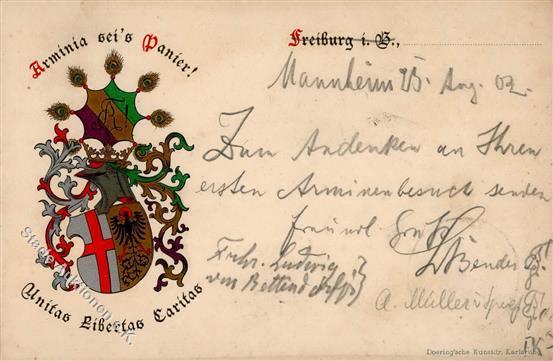 Arminia sei's Panier!
Freiburg i. B.,
Mannheim 25. Aug. 02.
Zum Andenken an Ihren
ersten Arminenbesuch senden
freundl. Gruß
L. Bender
Frhr. Ludwig
von Bettendorff
A. Müller
Unitas Libertas Caritas
Doering'sche Kunstdr. Karlsruhe